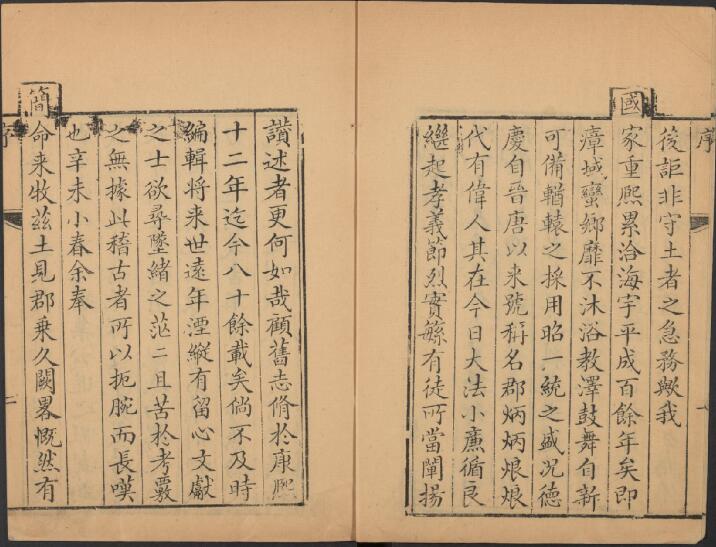 序
後詎非守土者之急務歟我
國
家重熙累洽海宇平成百餘年矣即
瘴域蠻鄉靡不沐浴教澤鼓舞自新
可備輶轅之採用昭一統之盛况德
慶自晉唐以来號稱名郡炳炳烺烺
代有偉人其在今日大法小廉循良
繼起孝義節烈實繁有徒所當闡揚
讃述者更何如哉顧舊志脩於康熙
十二年迄今八十餘載矣倘不及時
編輯將来世遠年湮縱有留心文獻
之士欲尋墜緒之茫二且苦於考覈
之無據此稽古者所以扼腕而長嘆
也辛未小春余奉
簡
命来牧茲土見郡乗久闕畧慨然有
序